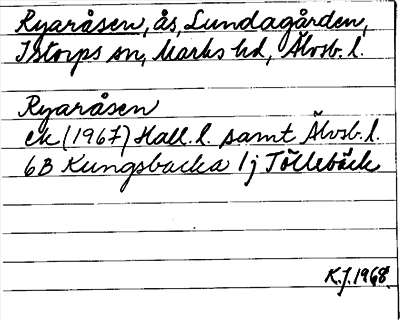 Ryaråsen, ås, Lundagården,
Istorps sn, Marks hd, Älvsb. l.
Ryaråsen
ek (1967) Hall. l. samt Älvsb. l.
6B Kungsbacka 1j Töllebäck
K.J. 1968.